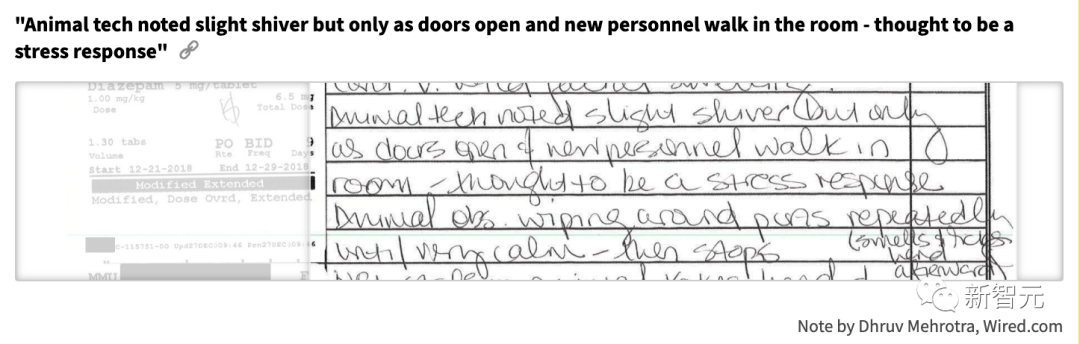 "Animal tech noted slight shiver but only as doors open and new personnel walk in the room - thought to be a
stress response"
Diazepam 5 mg/tablet
1.00 mg/kg 6.5 mg
Dose Total Dose
1.30 tabs PO BID 9
Volume Rte Freq Days
Start 12-21-2018 End 12-29-2018
Modified Extended
Modified, Dose Ovrd, Extended
Animal tech noted slight shiver (but only
as doors open & new personnel walk in
room - thought to be a stress response
Animal obs. wiping around pens repeatedly
until very calm - then stops (smells & licks
hand
afterward
新智元
Note by Dhruv Mehrotra, Wired.com